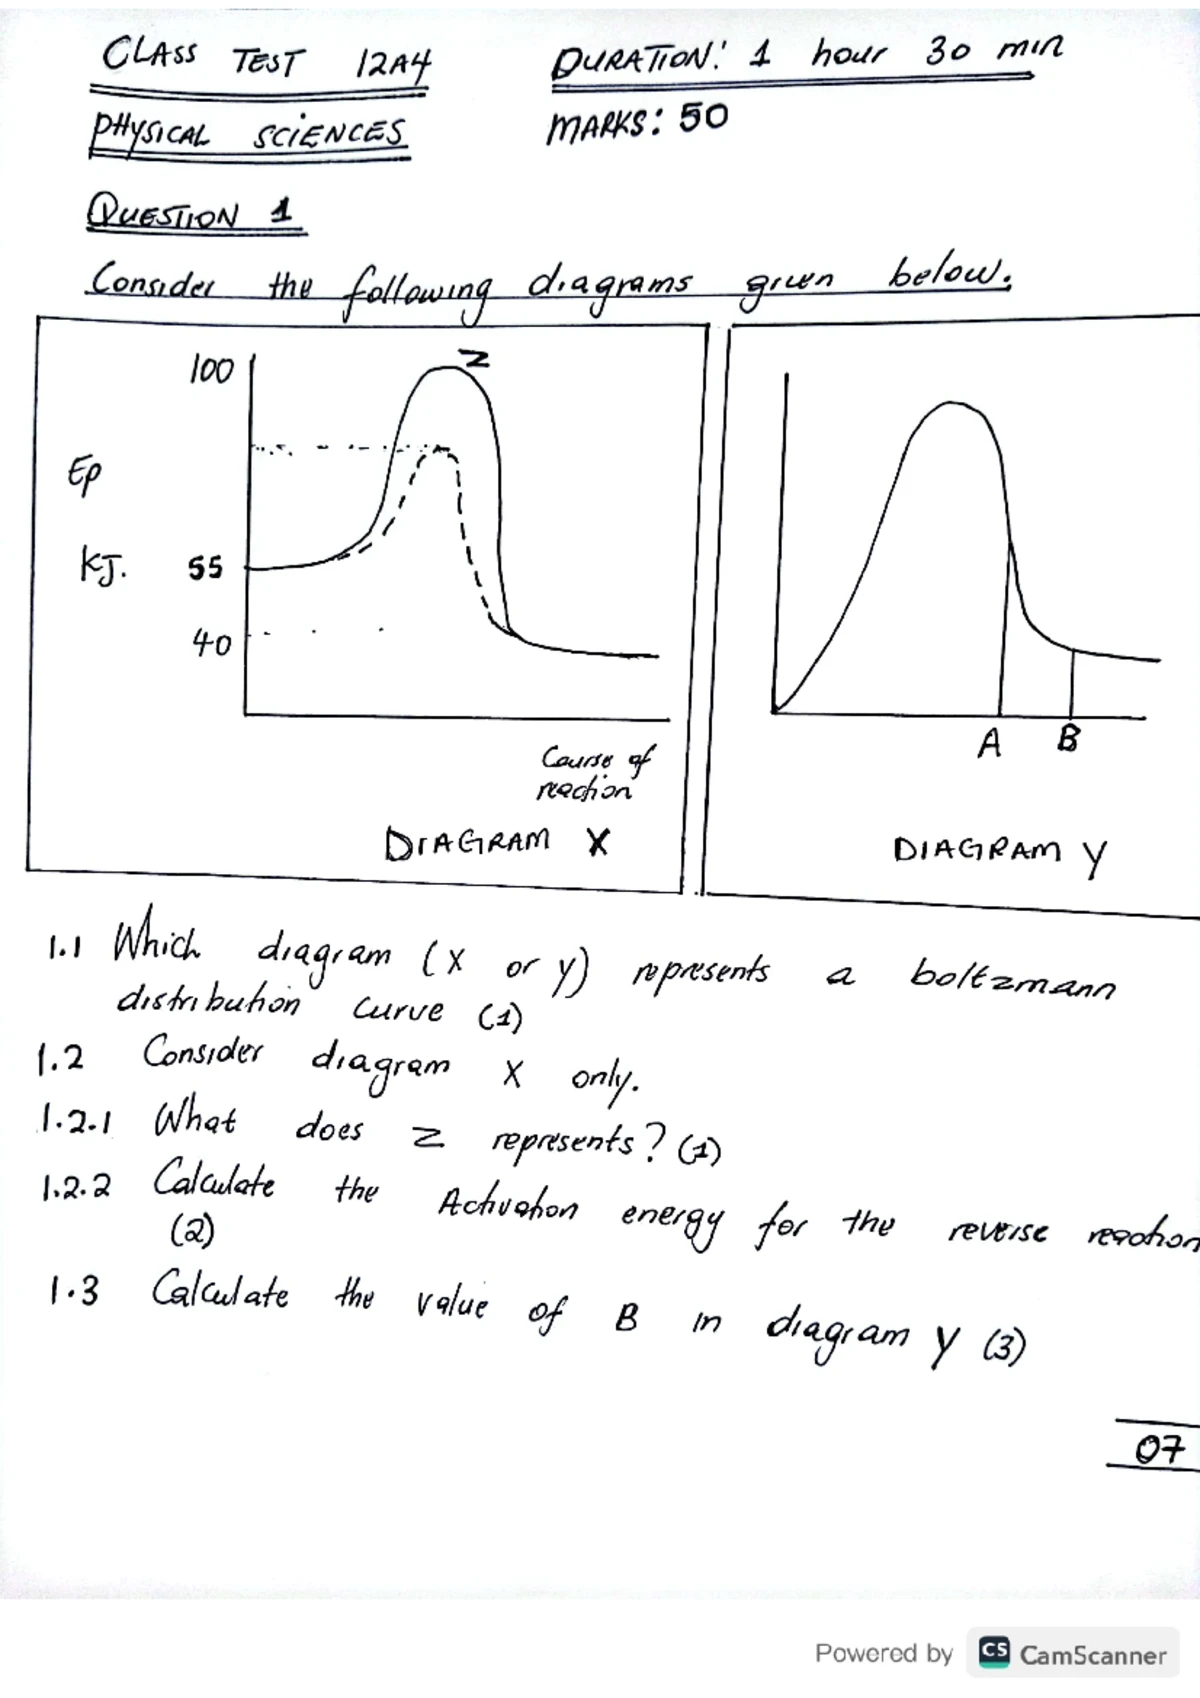 CLASS TEST 12A4 DURATION: 1 hour 30 min
PHYSICAL SCIENCES MARKS: 50
QUESTION 1
Consider the following diagrams given below.
100
Z
Ep
KJ.
55
40
Course of
reaction
DIAGRAM X
A B
DIAGRAM Y
1.1 Which diagram (X or Y) represents a boltzmann
distribution curve (1)
1.2 Consider diagram X only.
1.2.1 What does Z represents? (1)
1.2.2 Calculate the Activation energy for the reverse reaction
(2)
1.3 Calculate the value of B in diagram Y (3)
07
Powered by CS CamScanner